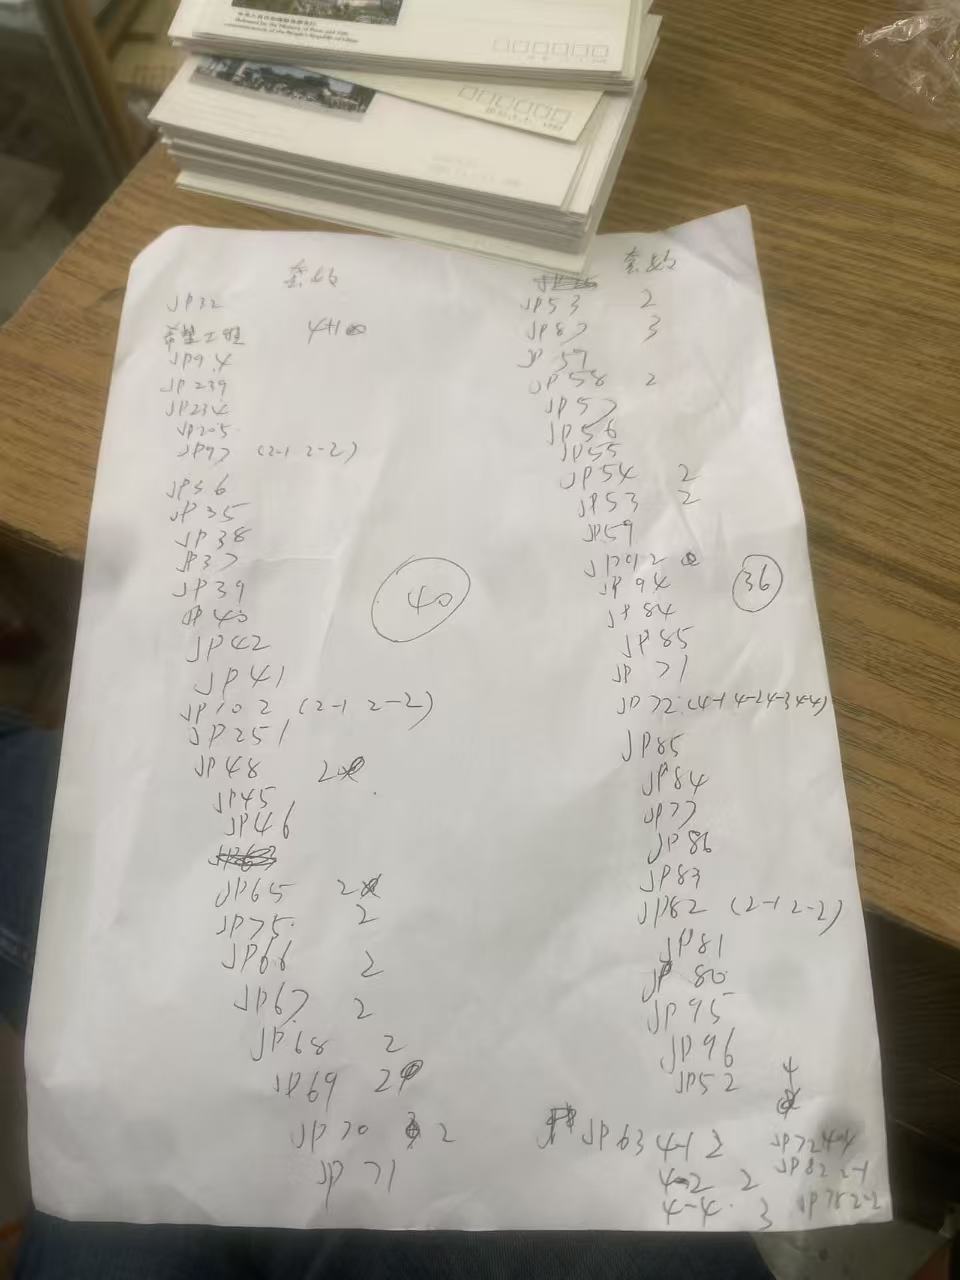 套数
JP32
希望工程 4+1
JP9.4
JP239
JP234
JP205
JP97 (2-1 2-2)
JP36
JP35
JP38
JP37
JP39
JP40
JP42
JP41
JP102 (2-1 2-2)
JP251
JP48 2
JP45
JP46
JP65 2
JP75 2
JP66 2
JP67 2
JP68 2
JP69 2
JP70 2
JP71
40
套数
JP53 2
JP87 3
JP59
JP58 2
JP57
JP56
JP55
JP54 2
JP53 2
JP59
JP92
JP94
JP84
JP85
JP71
JP72 (4-1 4-2 4-3 4-4)
JP85
JP84
JP77
JP86
JP83
JP82 (2-1 2-2)
JP81
JP80
JP95
JP96
JP52
36
JP63 4-1 2
4-2 2
4-4 3
4
JP72 4-4
JP82 2-1
JP78 2-2